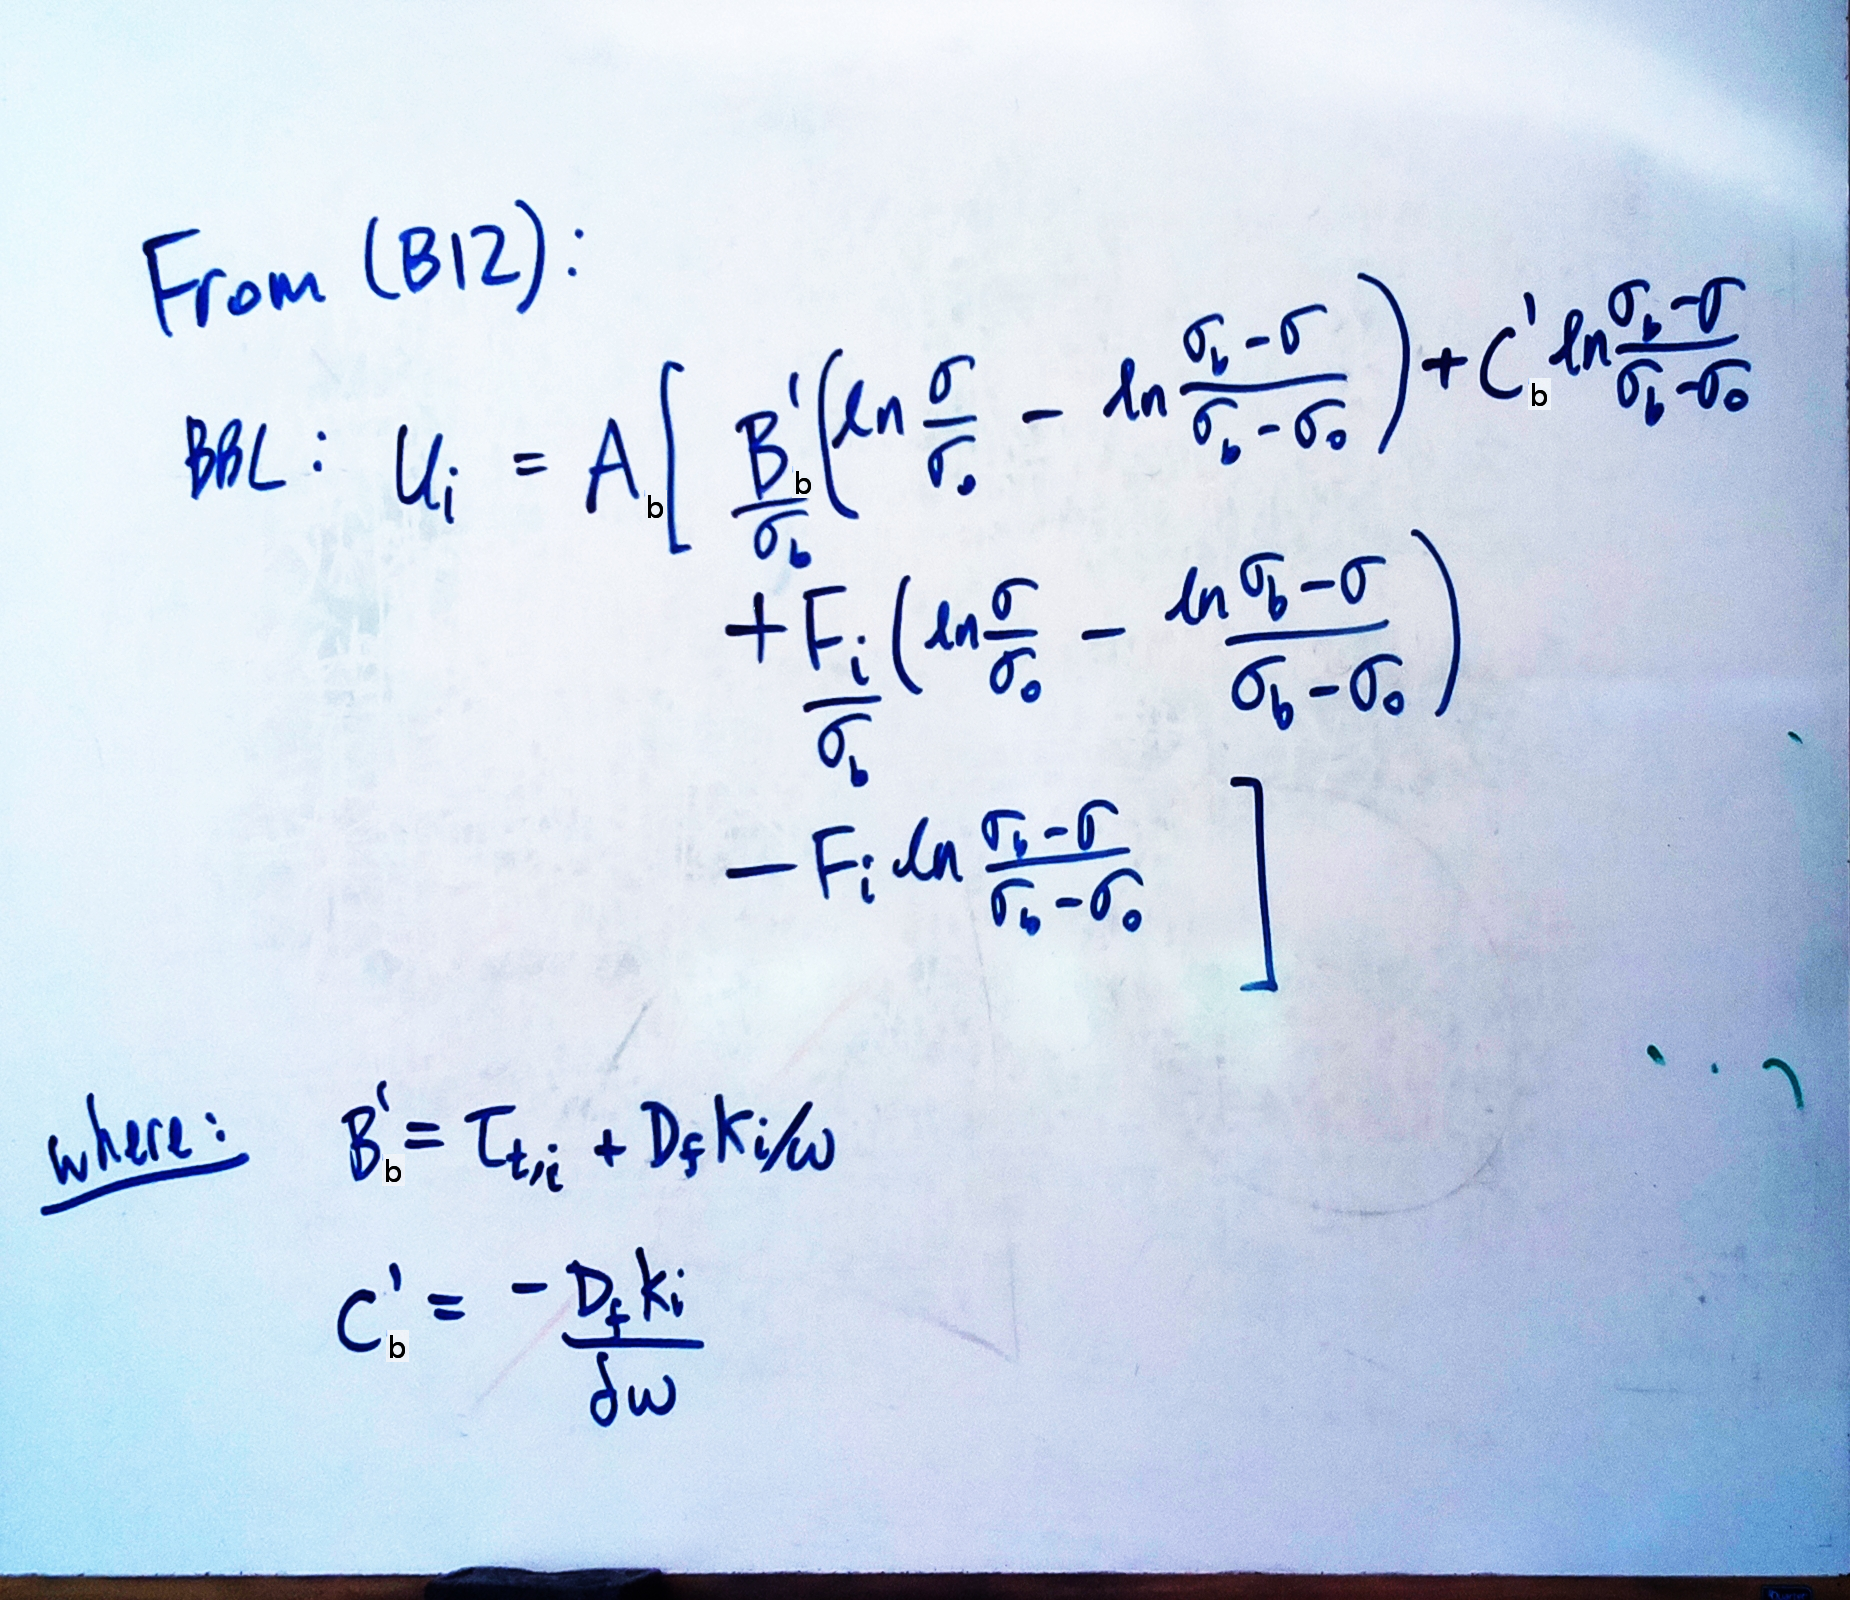 From (B12):
BBL: U_i = A_b [ B'_b/σ_b ( ln σ/σ_0 - ln (σ_b - σ)/(σ_b - σ_0) ) + C'_b ln (σ_b - σ)/(σ_b - σ_0)
+ F_i/σ_b ( ln σ/σ_0 - ln (σ_b - σ)/(σ_b - σ_0) )
- F_i ln (σ_b - σ)/(σ_b - σ_0) ]
where: B'_b = τ_{t,i} + D_f k_i/ω
C'_b = - D_f k_i/δω